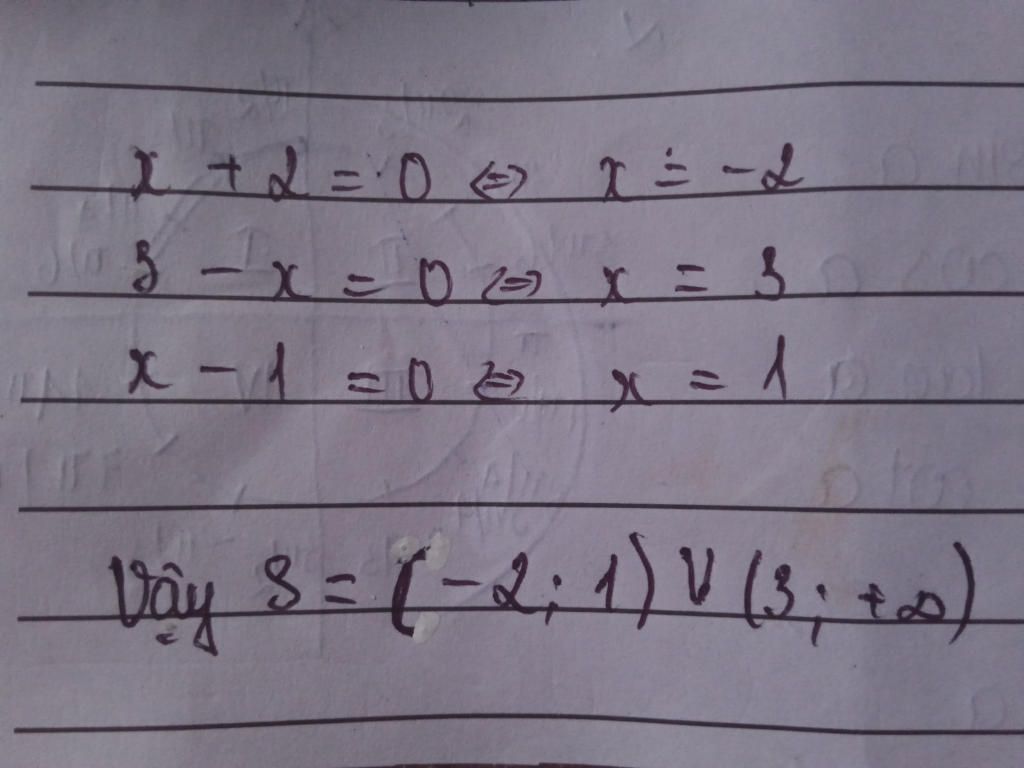 x + 2 = 0 ⇔ x = -2
3 - x = 0 ⇔ x = 3
x - 1 = 0 ⇔ x = 1
Vậy S = (-2; 1) ∪ (3; +∞)